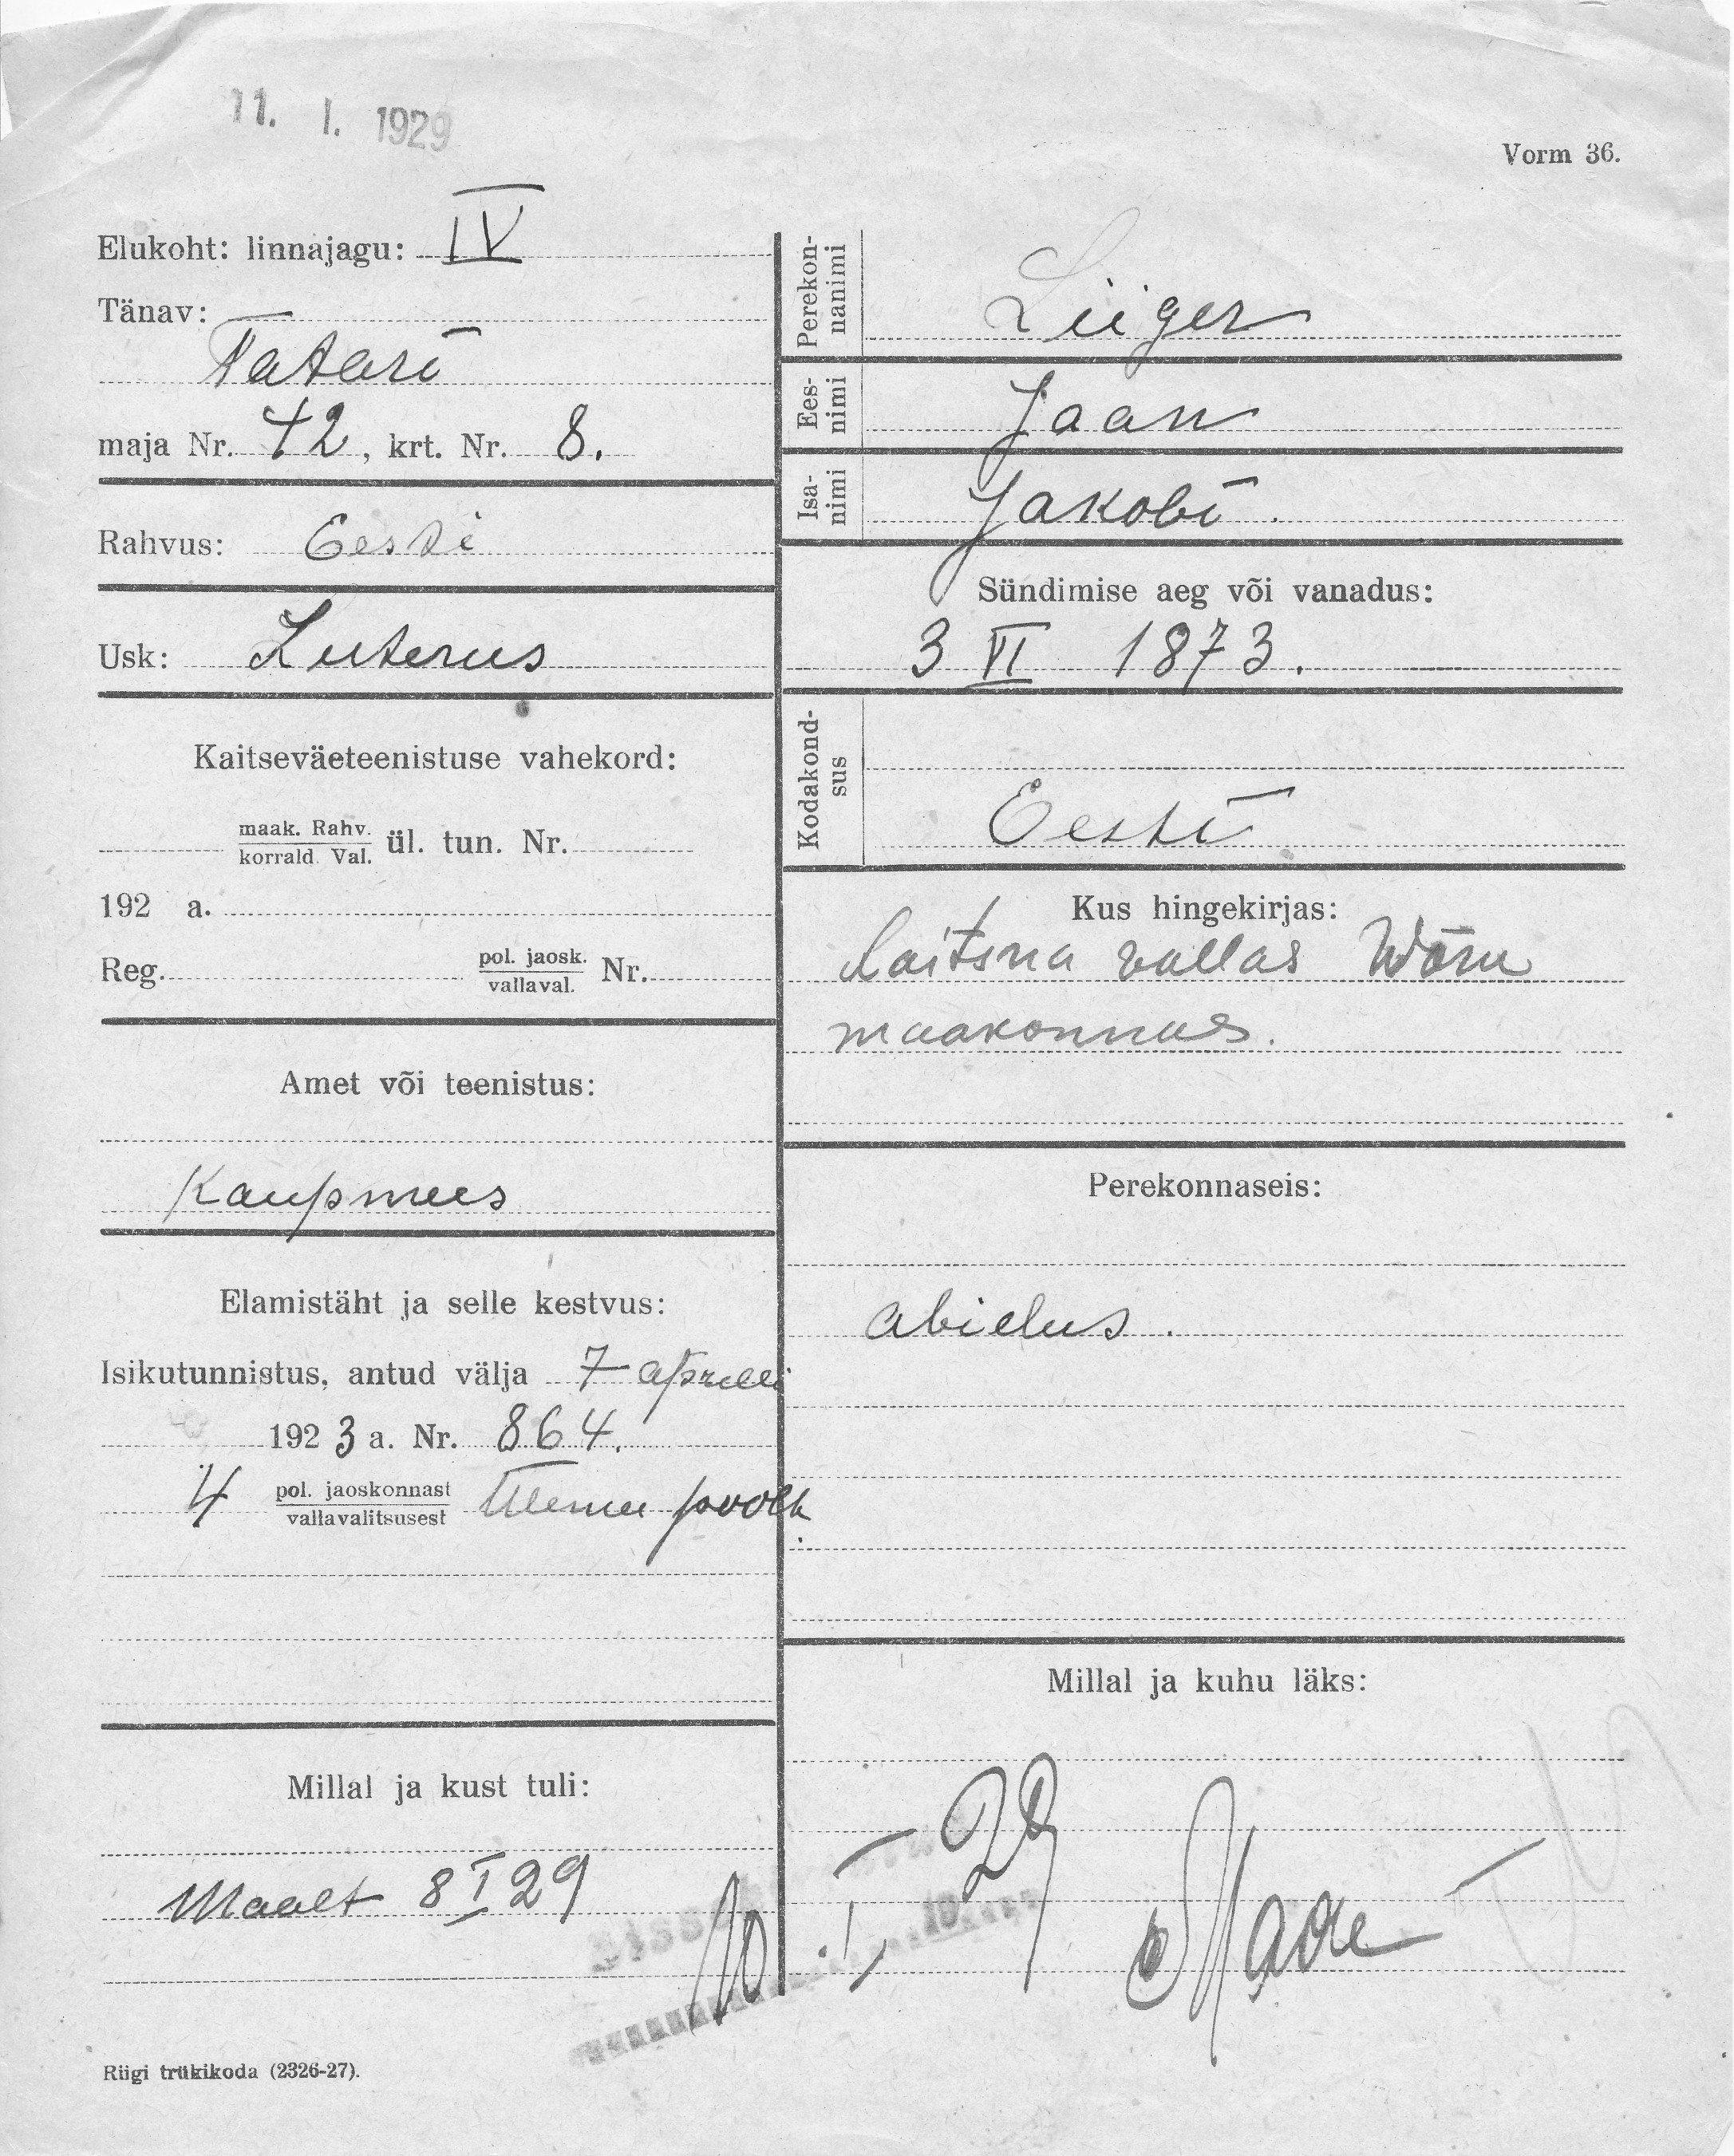 11. I. 1929
Vorm 36.
Elukoht: linnajagu: IV
Tänav:
Tatari
maja Nr. 42, krt. Nr. 8.
Rahvus: Eesti
Usk: Luterus
Kaitseväeteenistuse vahekord:
maak. Rahv.
korrald. Val. ül. tun. Nr.
192 a.
Reg. pol. jaosk.
vallaval. Nr.
Amet või teenistus:
Kaupmees
Elamistäht ja selle kestvus:
Isikutunnistus, antud välja 7 aprilli
1923 a. Nr. 864.
4 pol. jaoskonnast
vallavalitsusest poolt
Millal ja kust tuli:
Maalt 8 I 29
Riigi trükikoda (2326-27).
Perekon-
nanimi
Liiger
Ees-
nimi
Jaan
Isa-
nimi
Jakobi.
Sündimise aeg või vanadus:
3 VI 1873.
Kodakond-
sus
Eesti
Kus hingekirjas:
Laitsna vallas Wõru
maakonnas.
Perekonnaseis:
abielus.
Millal ja kuhu läks:
10. I 29